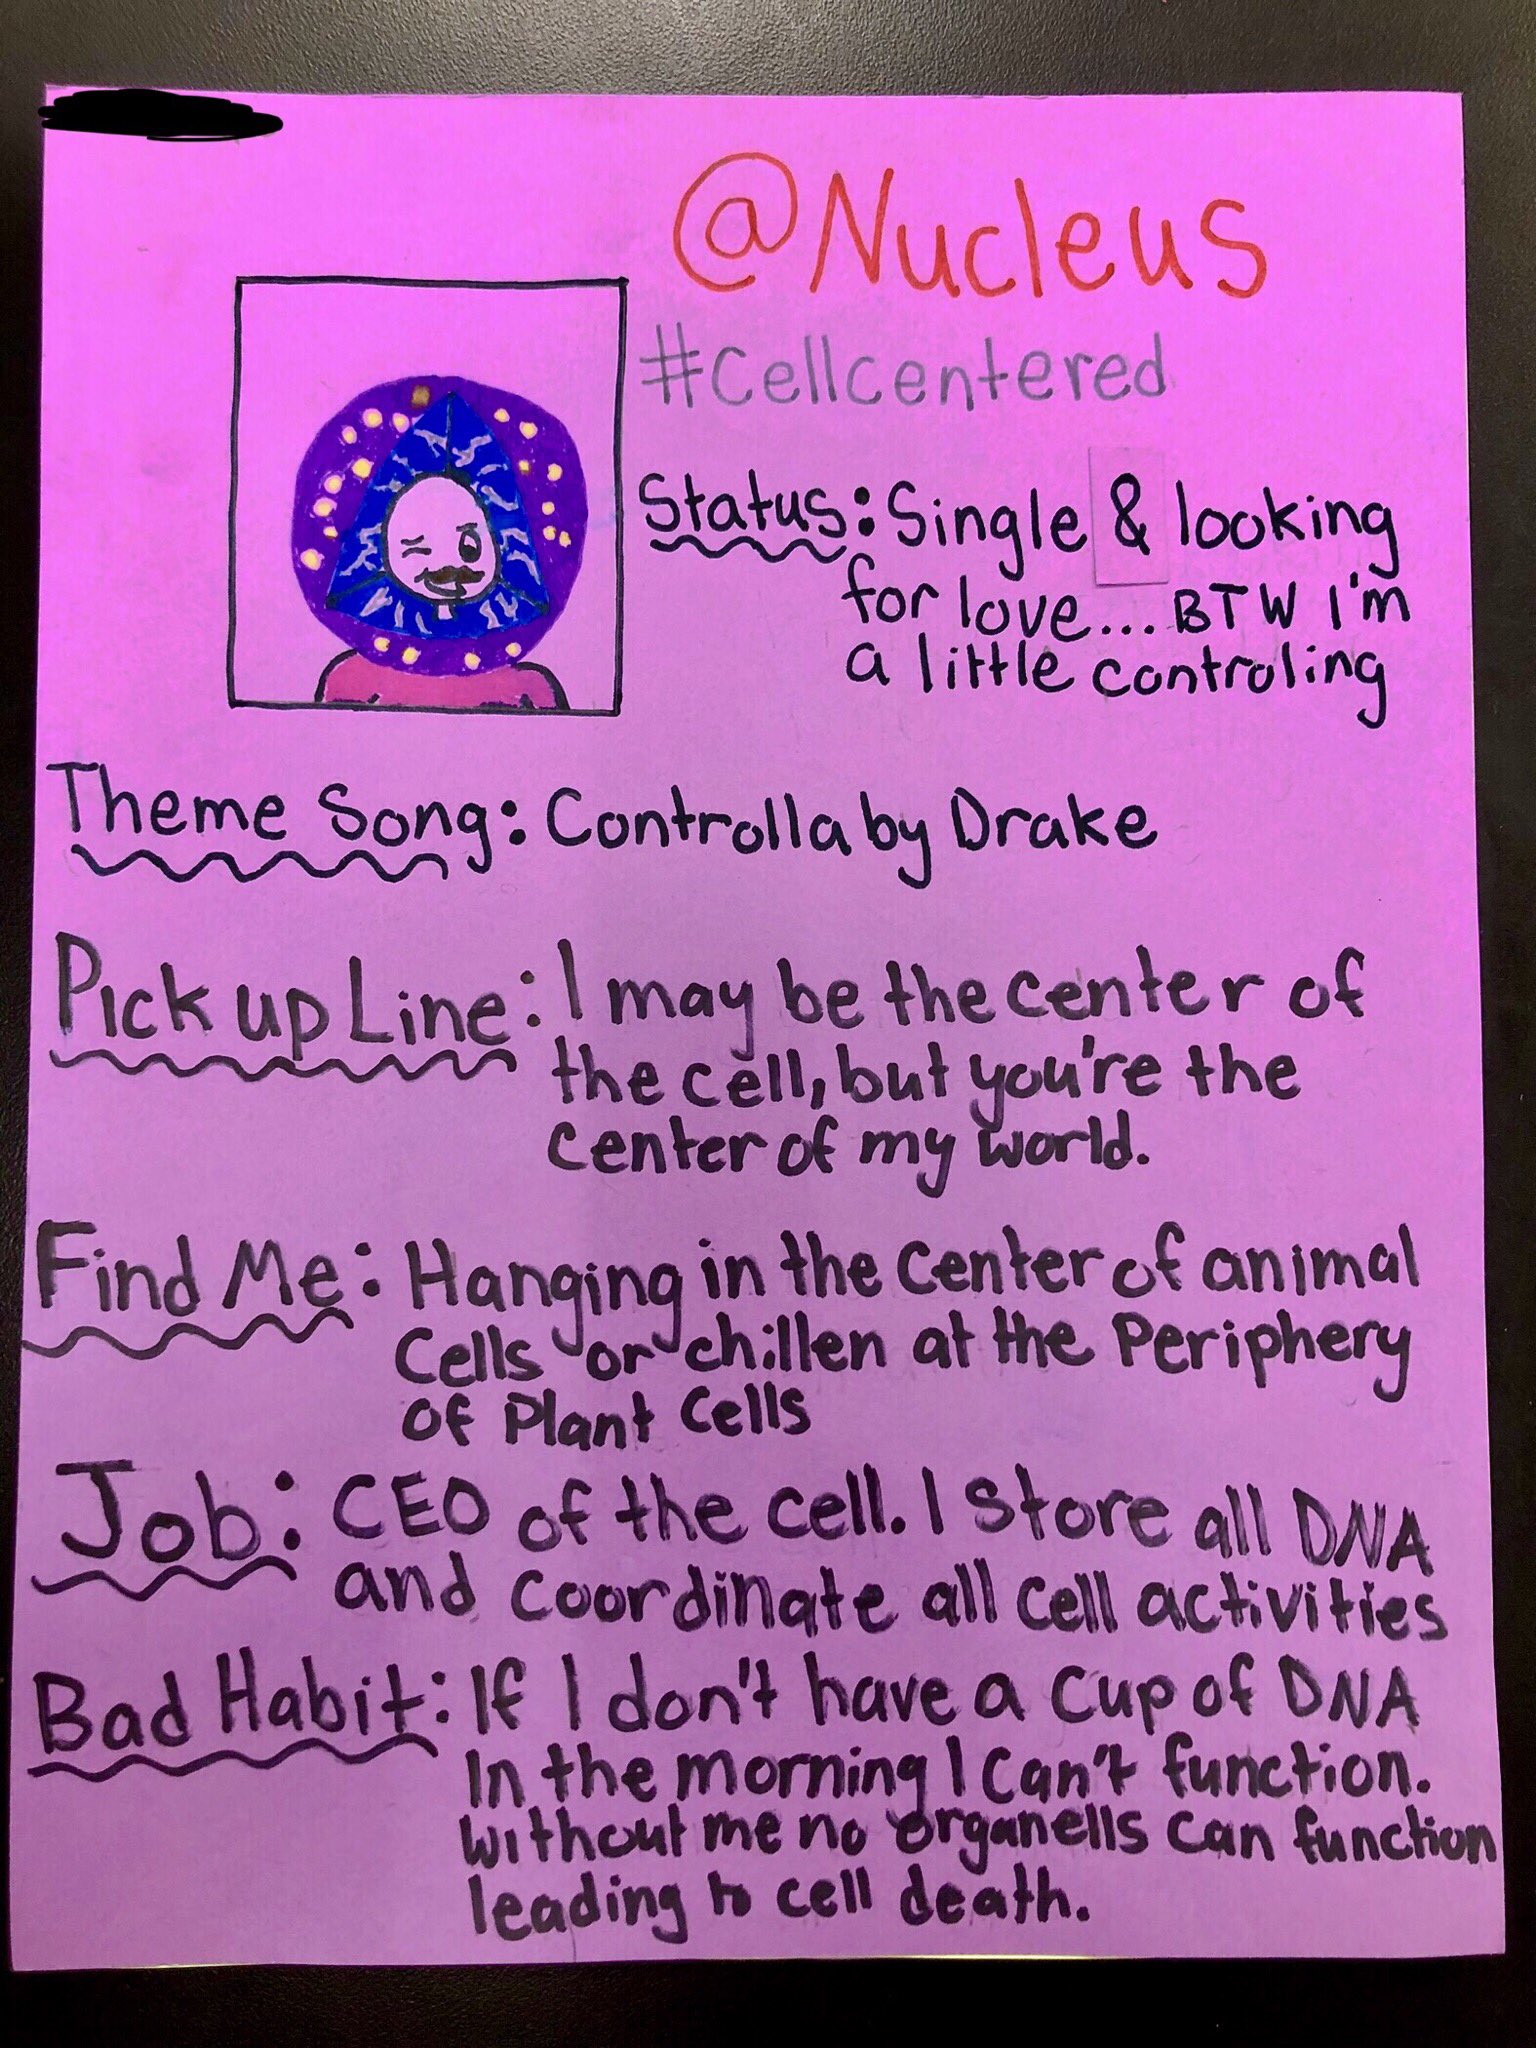 @Nucleus
#Cellcentered
Status: Single & looking
for love... BTW I'm
a little controling
Theme Song: Controlla by Drake
Pick up Line: I may be the center of
the cell, but you're the
center of my world.
Find Me: Hanging in the center of animal
cells or chillen at the Periphery
of Plant Cells
Job: CEO of the cell. I store all DNA
and coordinate all cell activities
Bad Habit: If I don't have a cup of DNA
In the morning I can't function.
without me no organells can function
leading to cell death.